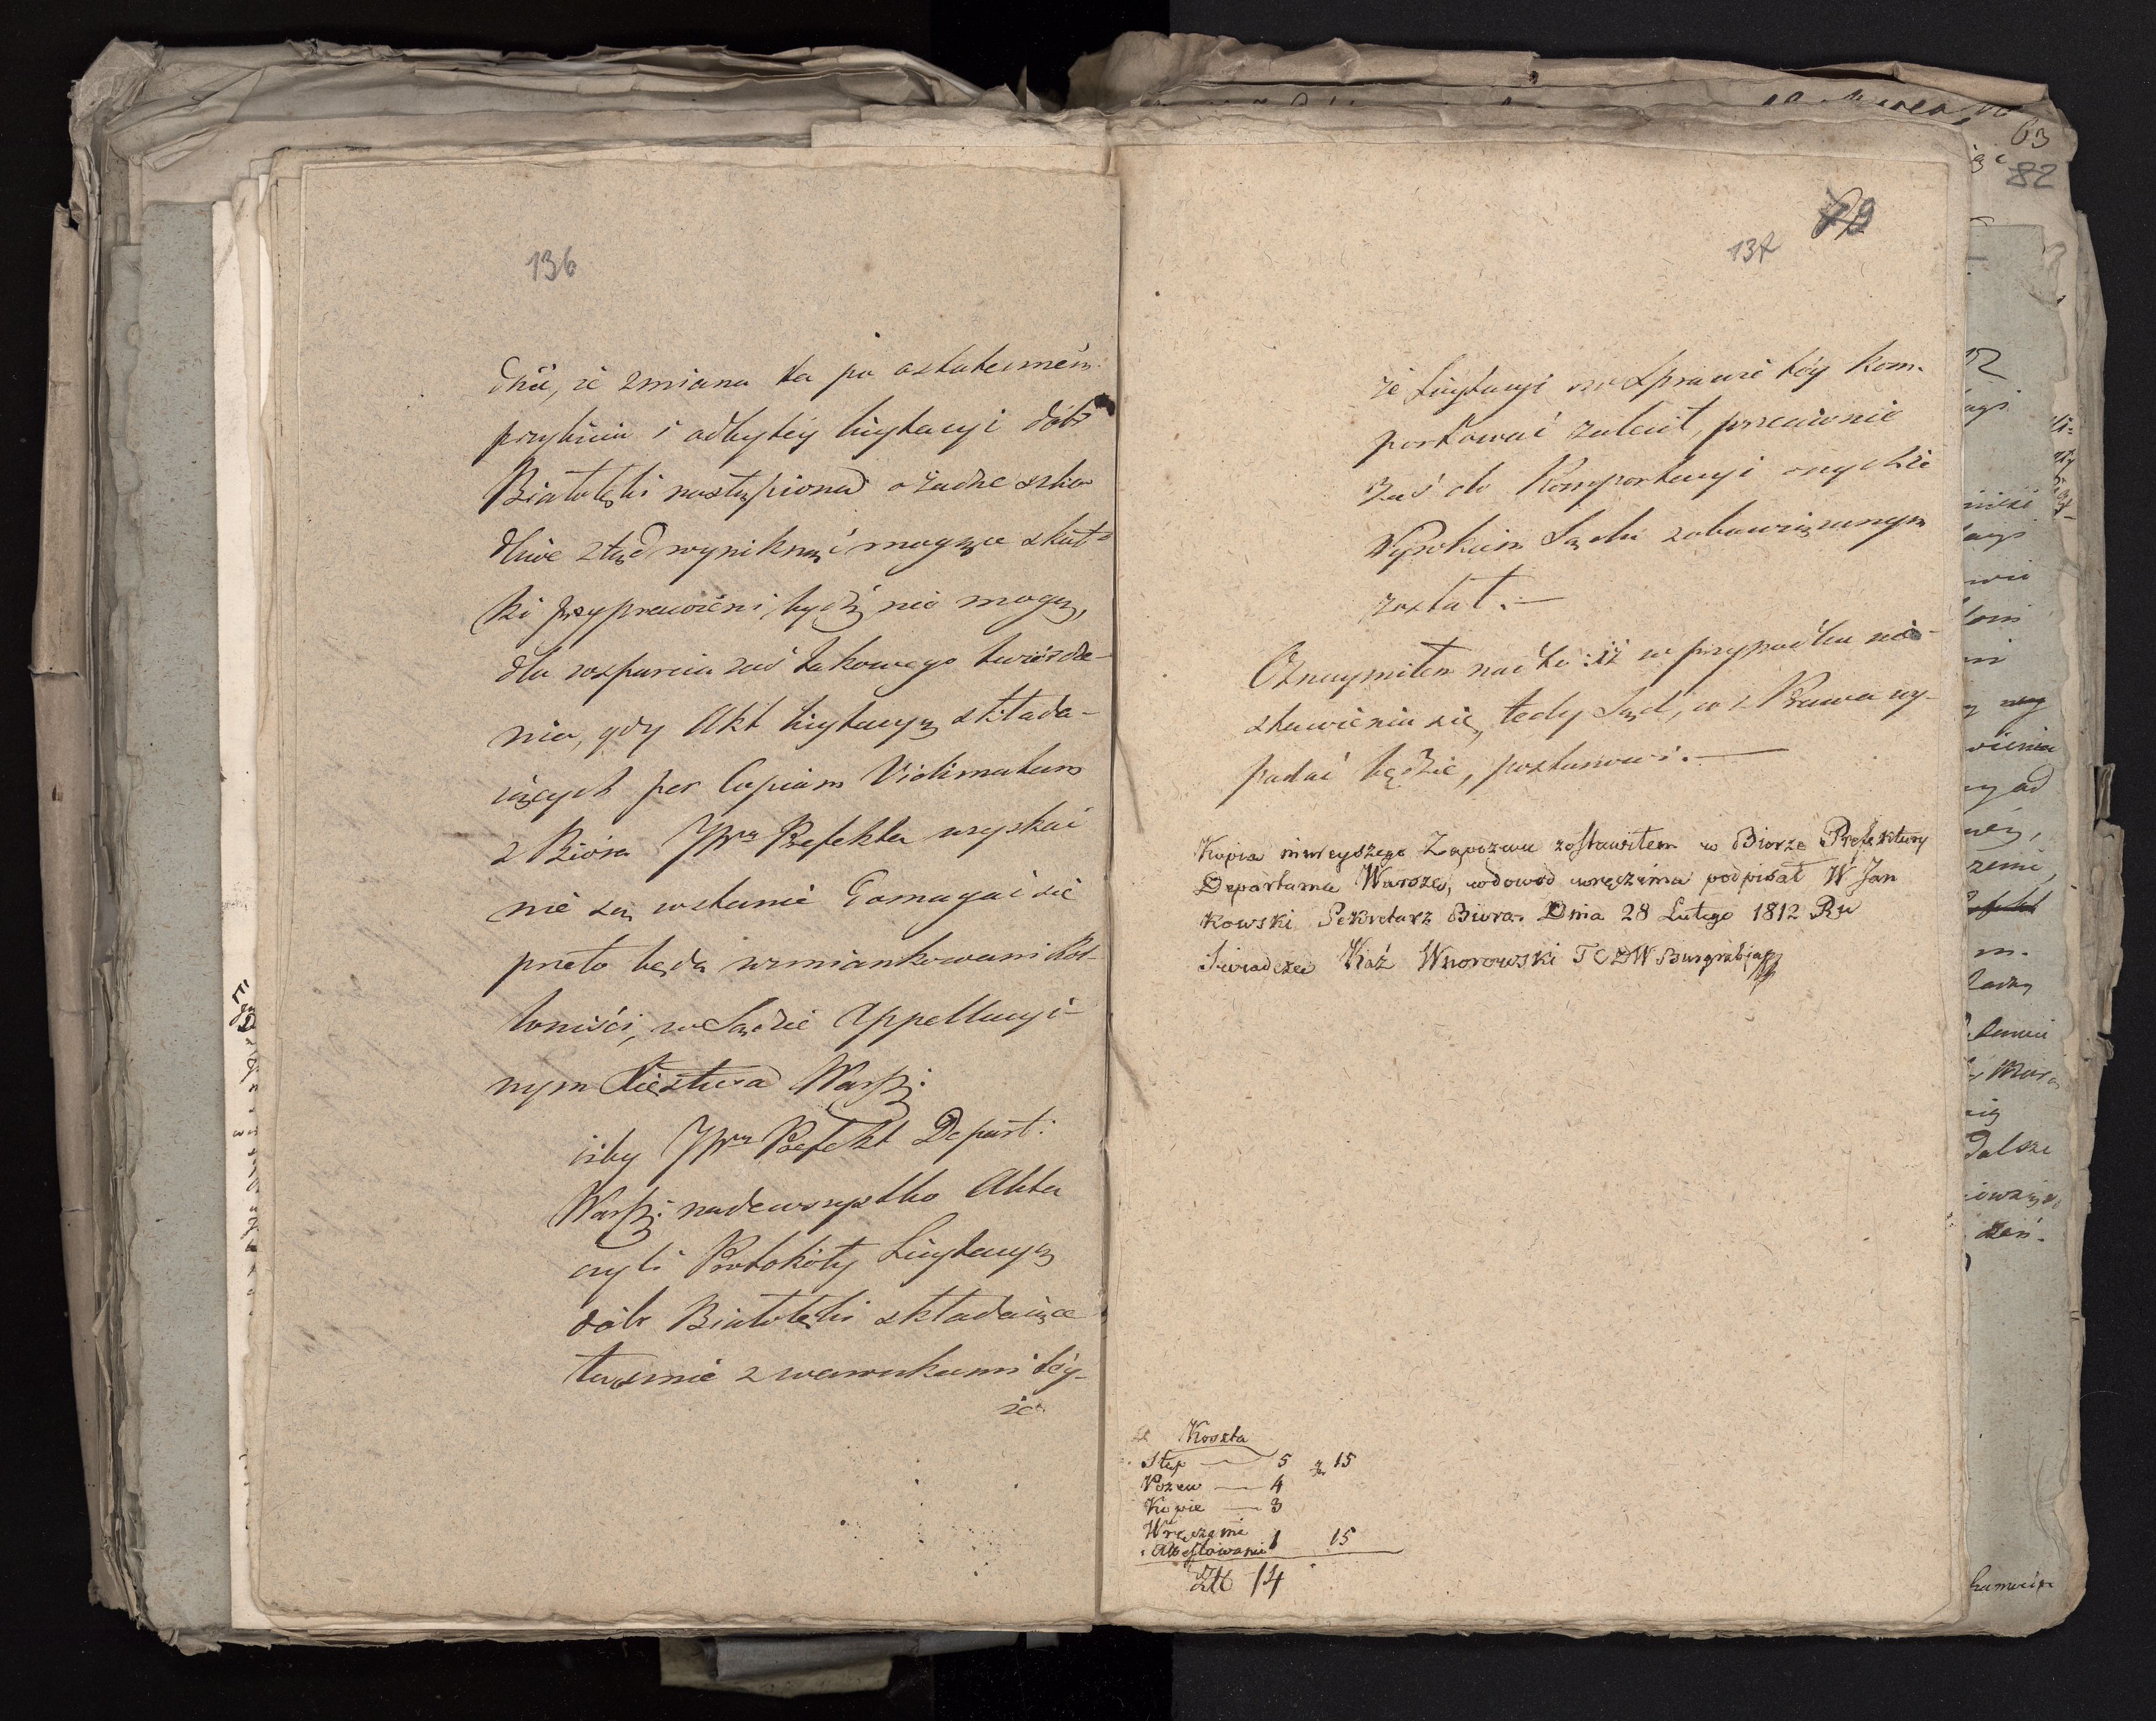 136
dnić, że zmiana ta po ostatecznem
przybiciu i odbytey licytacyi dóbr
Białołęki nastąpiona, a żadne szko
dliwe ztąd wyniknąć mogące skut-
ki przyprawieni bydź nie mogą,
dla wsparcia zaś takowego twierdze-
nia, gdy Akt licytacyą składa-
iących per Copiam Vidimatam
z Biora JWo Prefekta uzyskać
nie są wstanie Domagać się
prze to będą wzmiankowani Kol-
loniści, w Sądzie Appellacyi-
nym Xięstwa Warsz:
iżby JWny Prefekt Depart:
Warsz: nadewszystko Akta
czyli Protokóły Licytacyą
dóbr Białołęki składaiące
tudzież z warunkami téy-
że
137
79
że Licytacyi w Sprawie téy kom-
portować zalecił, przeciwnie
zaś do Komportacyi onychże
Wyrokiem Sądu zobowiązanym
został. —
Oznaymiłem nadto: iż w przypadku nie-
stawienia się, tedy Sąd, co z Prawa wy-
padać będzie, postanowi. —
Kopia ninieyszego Zapozwu zostawiłem w Biorze Prefektury
Departame Warszaw, wdowod wręczenia podpisał W Jan
kowski Sekretarz Biora. Dnia 28 Lutego 1812 Ru
Swiadczę Kaź Wnorowski TCDW Burgrabja
Koszta
Stęp — 5 gr 15
Pozew — 4
Kopie — 3
Wręczenie
i Attestowanie 1 15
Złt 14
63
82